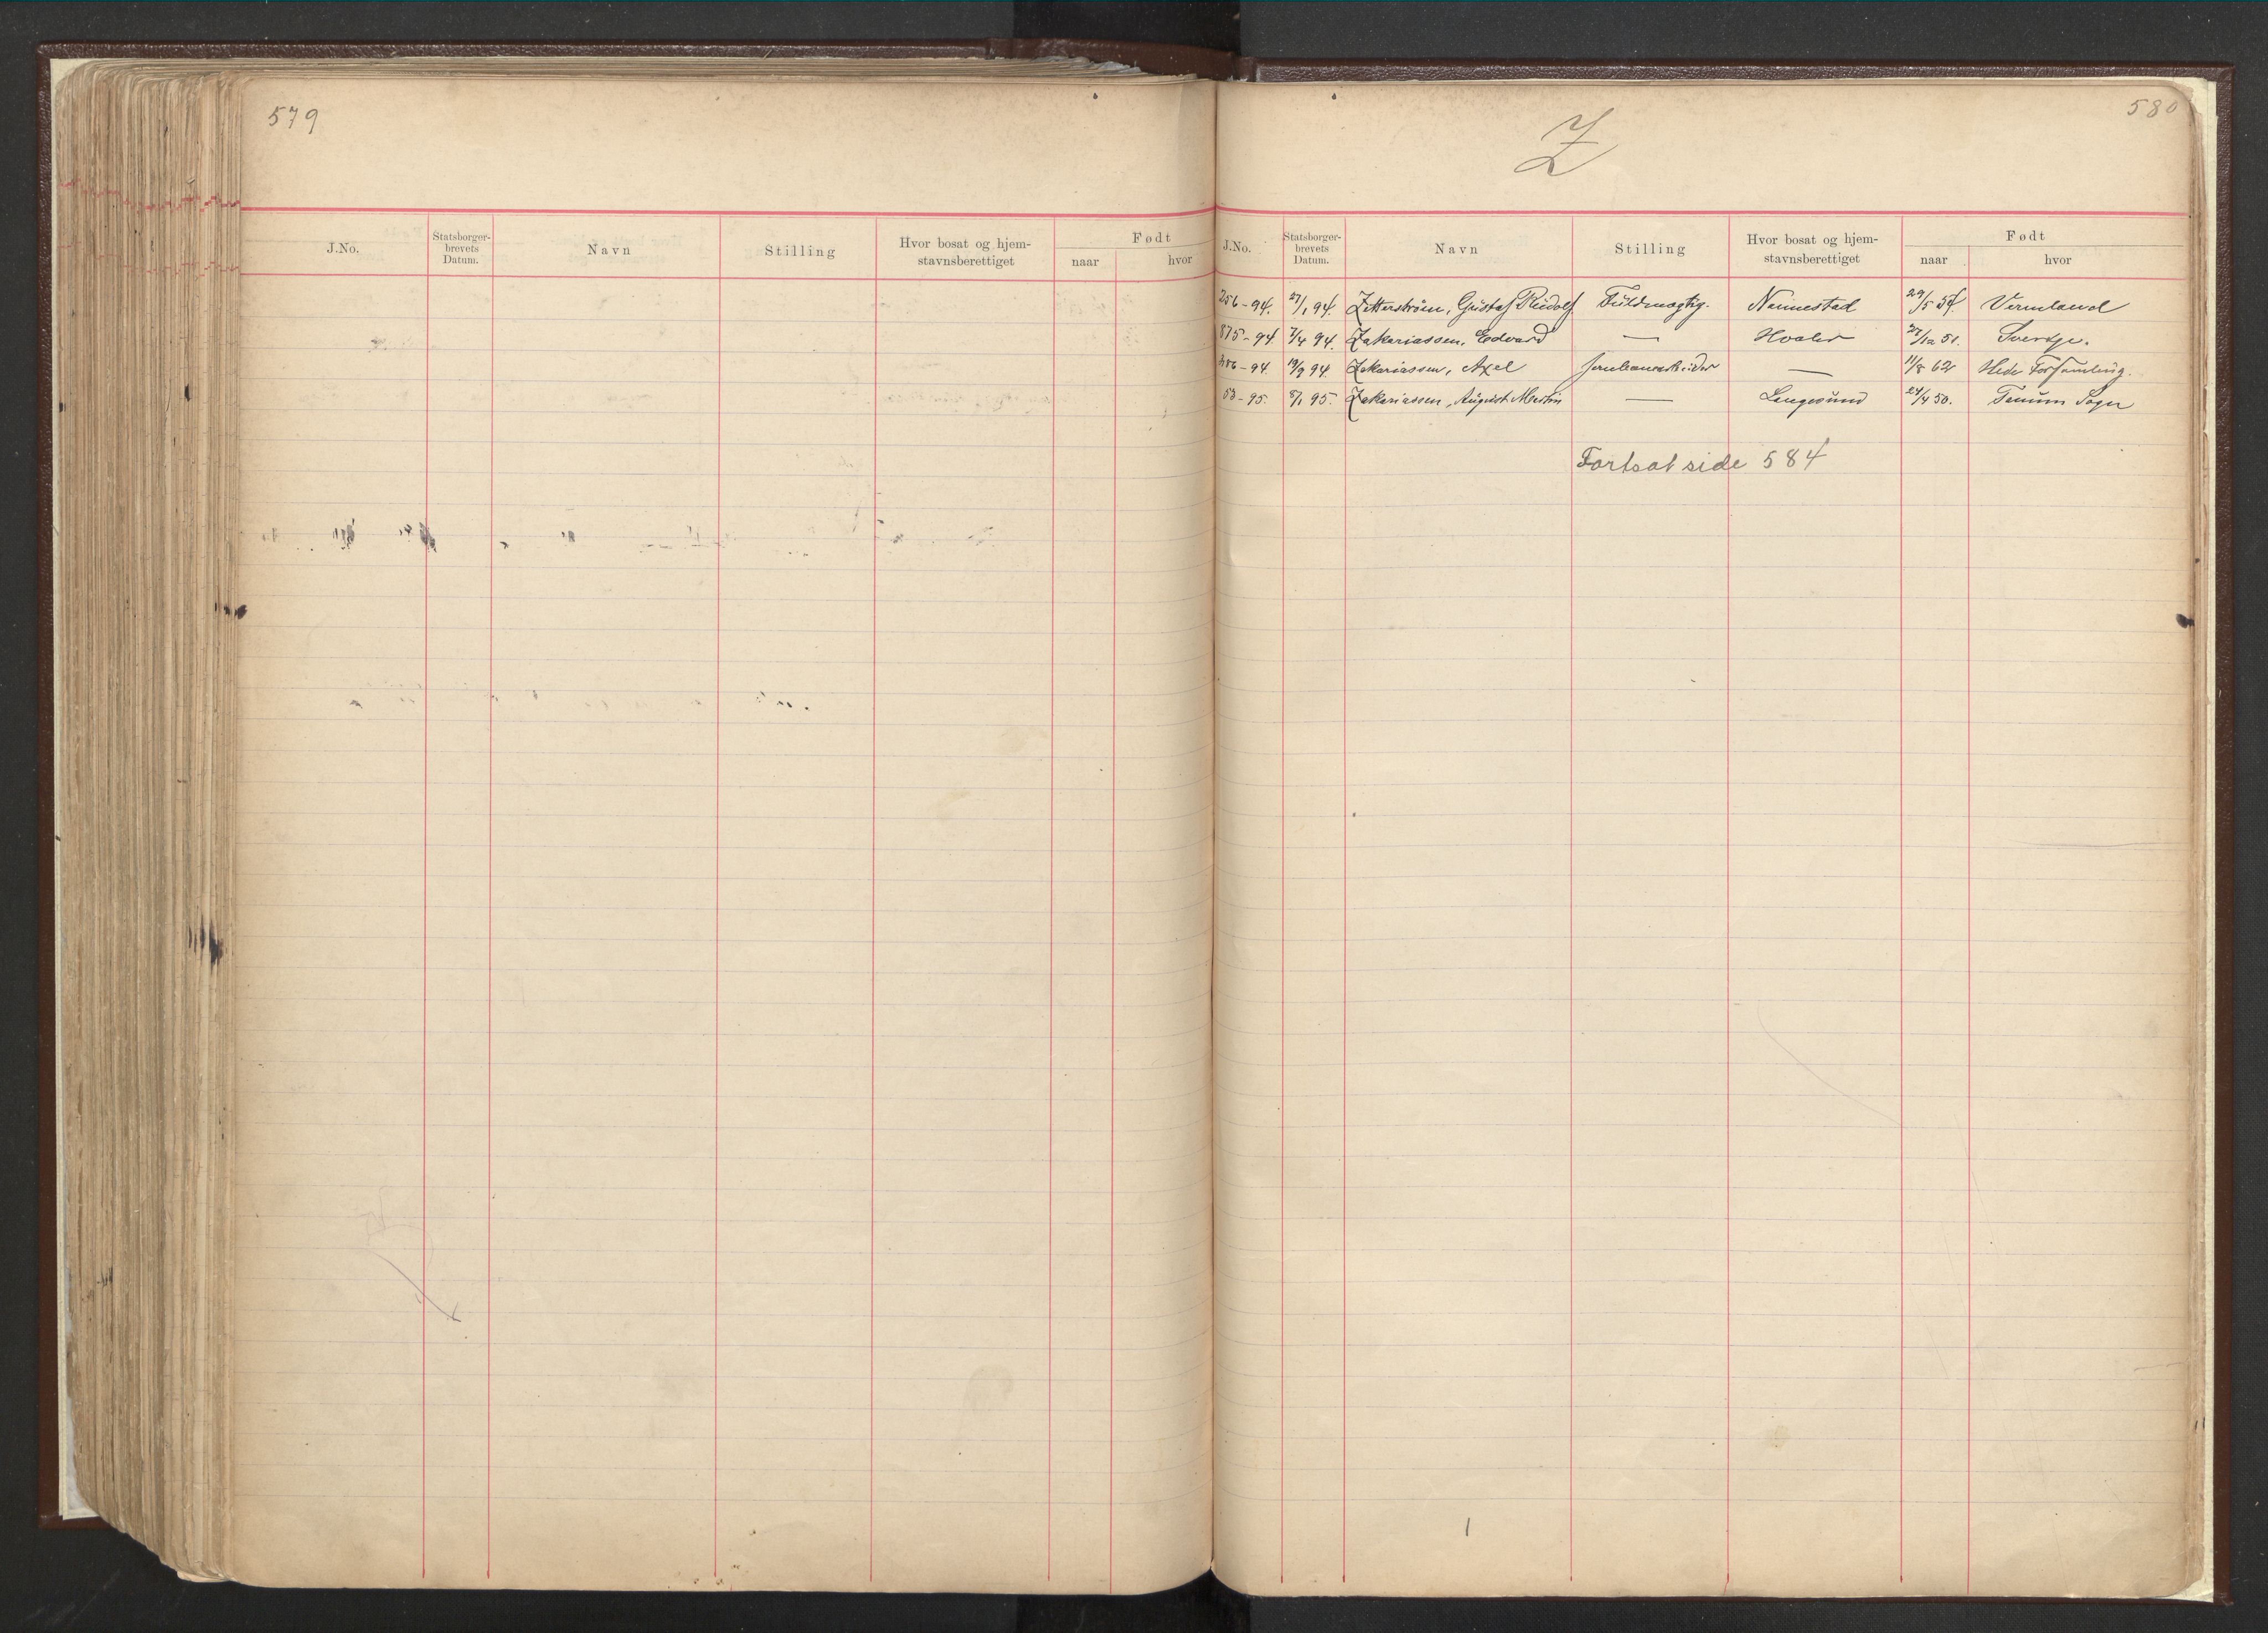 579
J.No. Statsborger-brevets Datum. Navn Stilling Hvor bosat og hjem-stavnsberettiget Født naar hvor
580
Z
J.No. Statsborger-brevets Datum. Navn Stilling Hvor bosat og hjem-stavnsberettiget Født naar hvor
256-94. 27/1 94. Zetterström, Gustaf Rudolf Fuldmægtig. Nannestad 29/5 57. Vermland
875-94 7/4 94. Zakariassen, Edvard — Hvaler 27/12 51. Sverige.
94. 19/9 94. Zakariassen, Axel Jernbanearbeider — 11/8 62 Hede Forsamling.
53-95. 8/1 95. Zakariassen, August Martin — Langesund 24/4 50. Tanum Sogn
Fortsat side 584